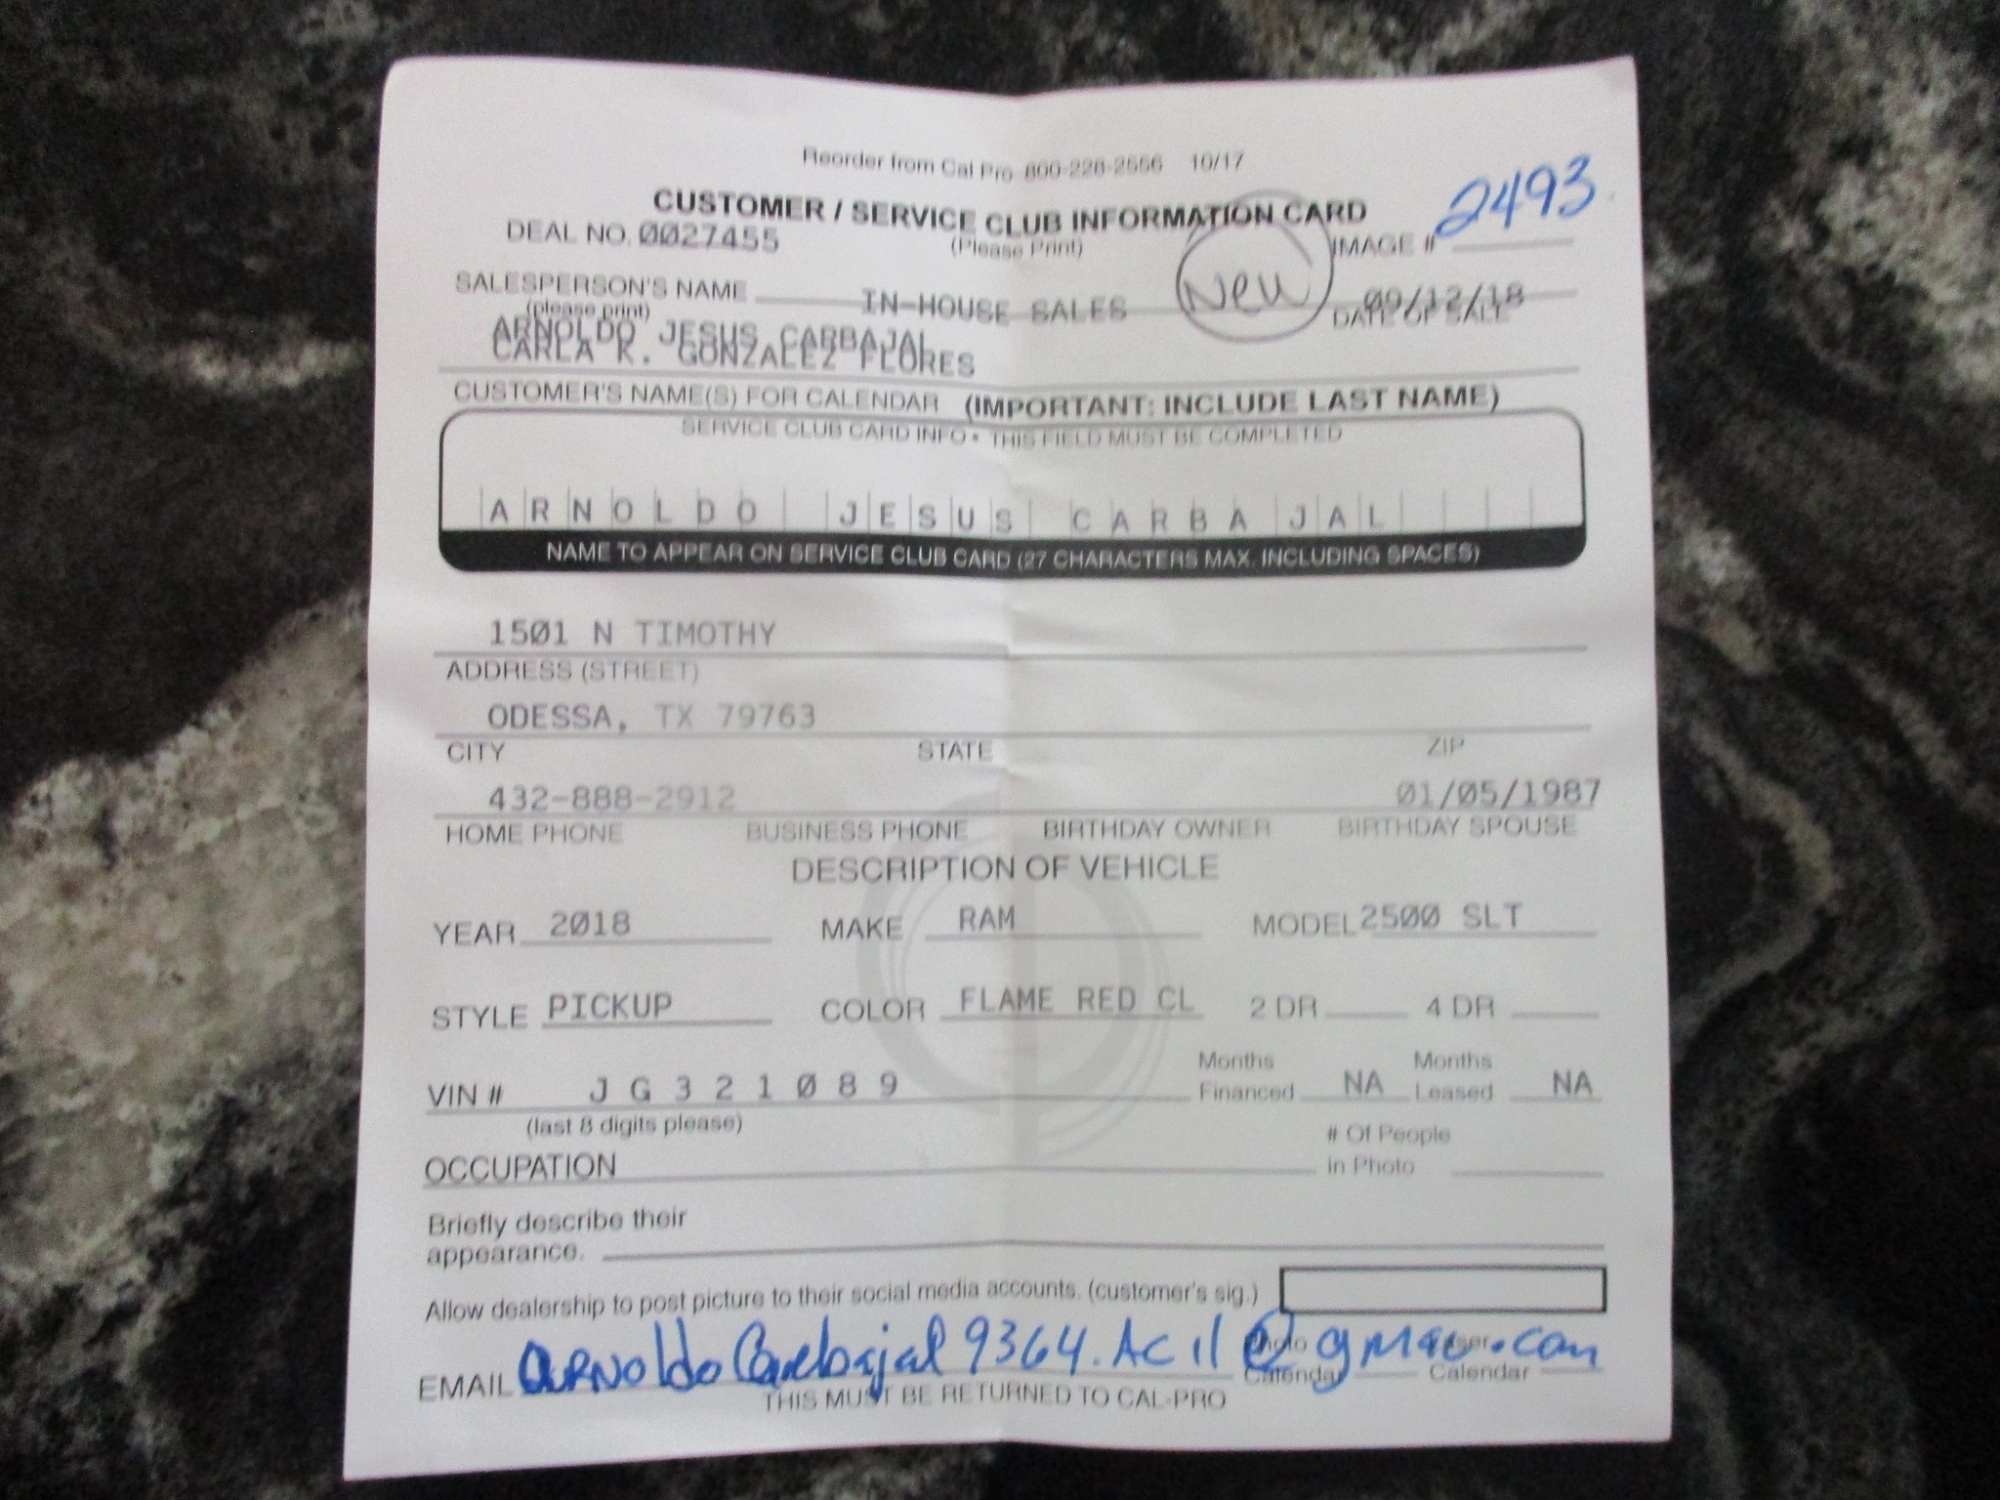 Reorder from Cal Pro 800-228-2556 10/17
CUSTOMER / SERVICE CLUB INFORMATION CARD
2493
DEAL NO. 0027455 (Please Print) IMAGE #
SALESPERSON'S NAME IN-HOUSE SALES New 09/12/18
(please print) DATE OF SALE
ARNOLDO JESUS CARBAJAL
CARLA K. GONZALEZ FLORES
CUSTOMER'S NAME(S) FOR CALENDAR (IMPORTANT: INCLUDE LAST NAME)
SERVICE CLUB CARD INFO • THIS FIELD MUST BE COMPLETED
ARNOLDO JESUS CARBAJAL
NAME TO APPEAR ON SERVICE CLUB CARD (27 CHARACTERS MAX. INCLUDING SPACES)
1501 N TIMOTHY
ADDRESS (STREET)
ODESSA, TX 79763
CITY STATE ZIP
432-888-2912 01/05/1987
HOME PHONE BUSINESS PHONE BIRTHDAY OWNER BIRTHDAY SPOUSE
DESCRIPTION OF VEHICLE
YEAR 2018 MAKE RAM MODEL 2500 SLT
STYLE PICKUP COLOR FLAME RED CL 2 DR 4 DR
Months Months
VIN # JG321089 Financed NA Leased NA
(last 8 digits please)
# Of People
OCCUPATION in Photo
Briefly describe their
appearance.
Allow dealership to post picture to their social media accounts. (customer's sig.)
Photo
EMAIL Calendar Calendar
THIS MUST BE RETURNED TO CAL-PRO